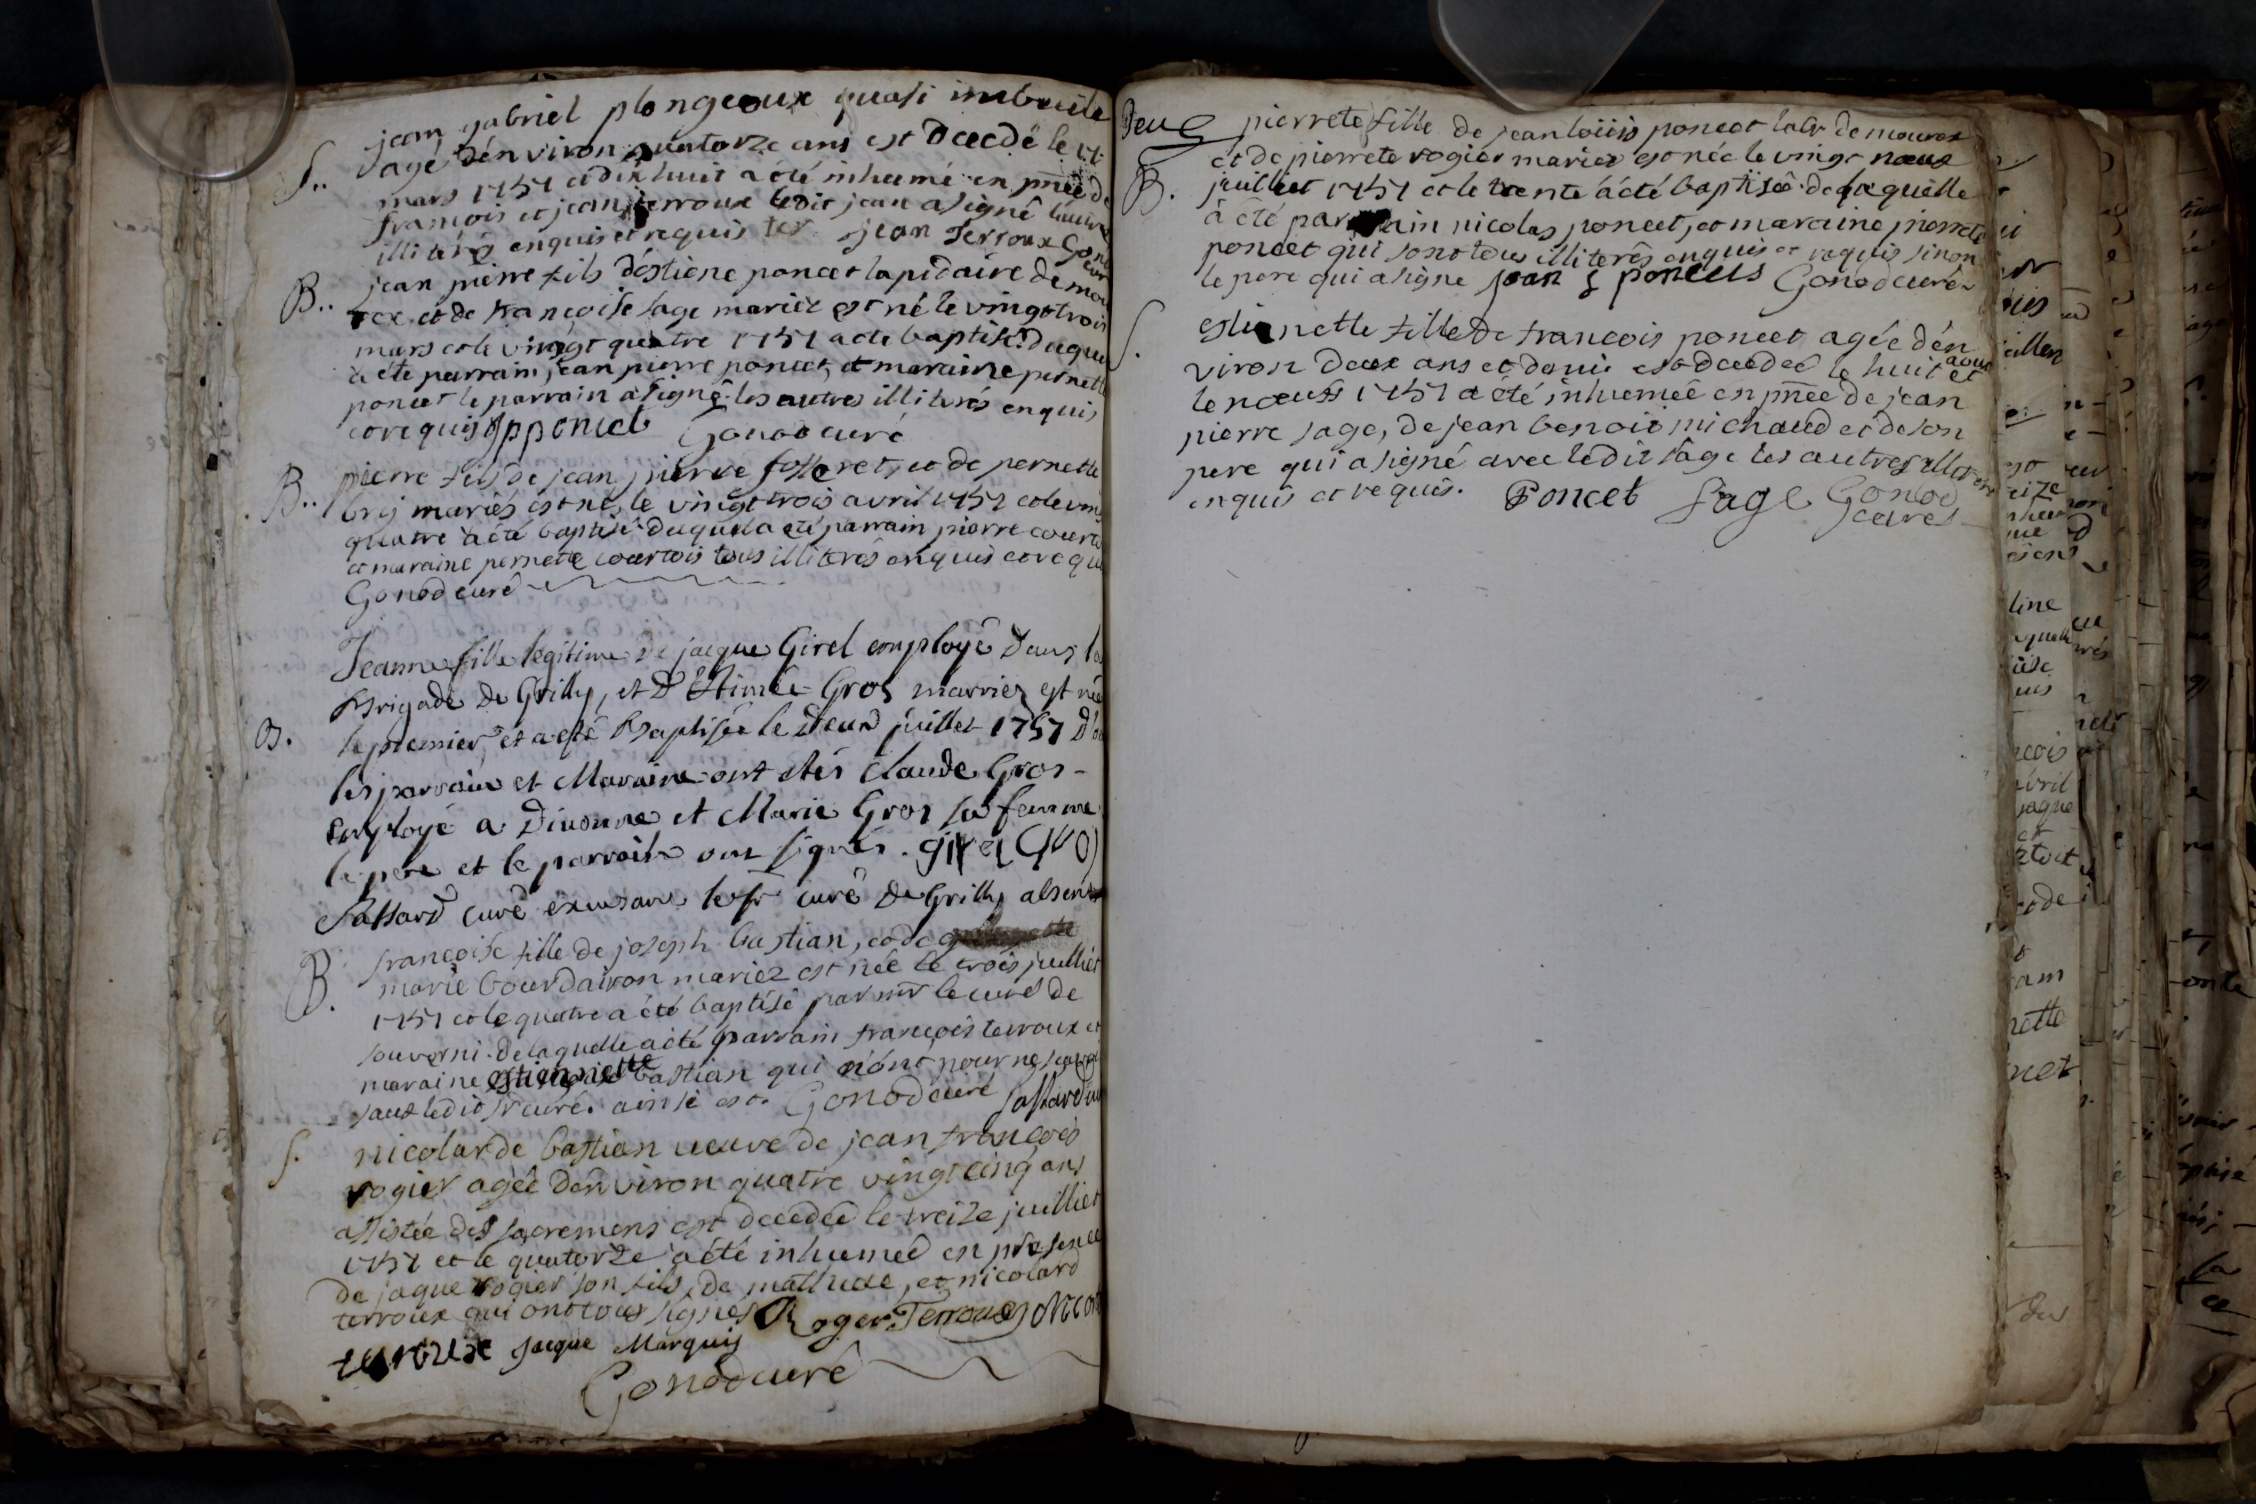 jean gabriel plongeoux quasi imbecile
S.. agé dénviron quatorze ans est decedé le
mars 1757 et dixhuit a été inhumé en pnce de
francois et jean terroux ledit jean a signé l'autre
illiteré enquis et requis jean Terroux Gonod
curé
B.. jean pierre fils déstiene poncet lapidaire de mou
rex et de francoise sage mariez est né le vingt trois
mars et le vingt quatre 1757 a ete baptisé. duquel
a eté parrain jean pierre poncet, et maraine pernette
poncet le parrain a signé les autres illiterés enquis
et requis jp poncet Gonod curé
B.. pierre fils de jean pierre et de pernette
brij mariés est né le vingt trois avril 1757 et le vint
quatre a été baptisé duquel a eté parrain pierre courto
et maraine pernette courtois tous illiterés enquis et requis
Gonod curé
Jeanne fille legitime de jacque Girel employé dans la
Brigade de Grilly, et d'Etimée Gros marriez est née
B. le premier et a esté Baptisée le deux juillet 1757 D
les parrain et Maraine ont étés Claude Gros
Employé a Divonne et Marie Gros sa femme
le pere et le parrain ont signés. girel Gro
Passard curé excusant le sr curé de Grilly absent
francoise fille de joseph bastian, et de
B. marie bourdairon mariez est née le trois juilliet
1757 et le quatre a été baptisé par mr le curé de
souverni. de laquelle a eté parrain francois terroux et
maraine estiennette bastian qui n'ont pour ne scavoi
sauf ledit sr curé. ainsi est. Gonod curé Passard cu
S. nicolarde bastian veuve de jean francois
rogier agée denviron quatre vingt cinq ans
assistée des sacremens est decedée le treize juilliet
1757 et le quatorze a été inhumeé en présence
de jaque rogier son fils, de mathieu, et nicolard
terroux qui ont tous signes Roger Terroux nicola
terroux jacque Marquis
Gonod curé
Deus pierrete fille de jean loüis poncet labr de mourex
et de pierrete rogier mariez est née le vingt noeuf
B. juilliet 1757 et le trente a été baptisée. de laquelle
à été parrain nicolas poncet, et maraine pierrete
poncet qui sont tous illiterés enquis et requis sinon
le pere qui a signé jean L poncets Gonod curé
S. estienette fille de francois poncet agée dén
viron deux ans et demi est decedée le huit aout et
le noeuf 1757 a été inhumeé en pnce de jean
pierre sage, de jean benoit michaud et de son
pere qui a signé avec ledit sage les autres illiterés
enquis et requis. Poncet Sage Gonod
curé